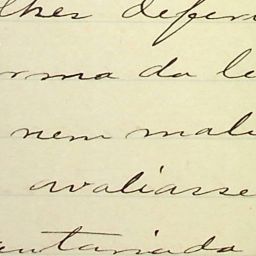 lhes deferi
rma da le
nem mali
avaliasse
entariada